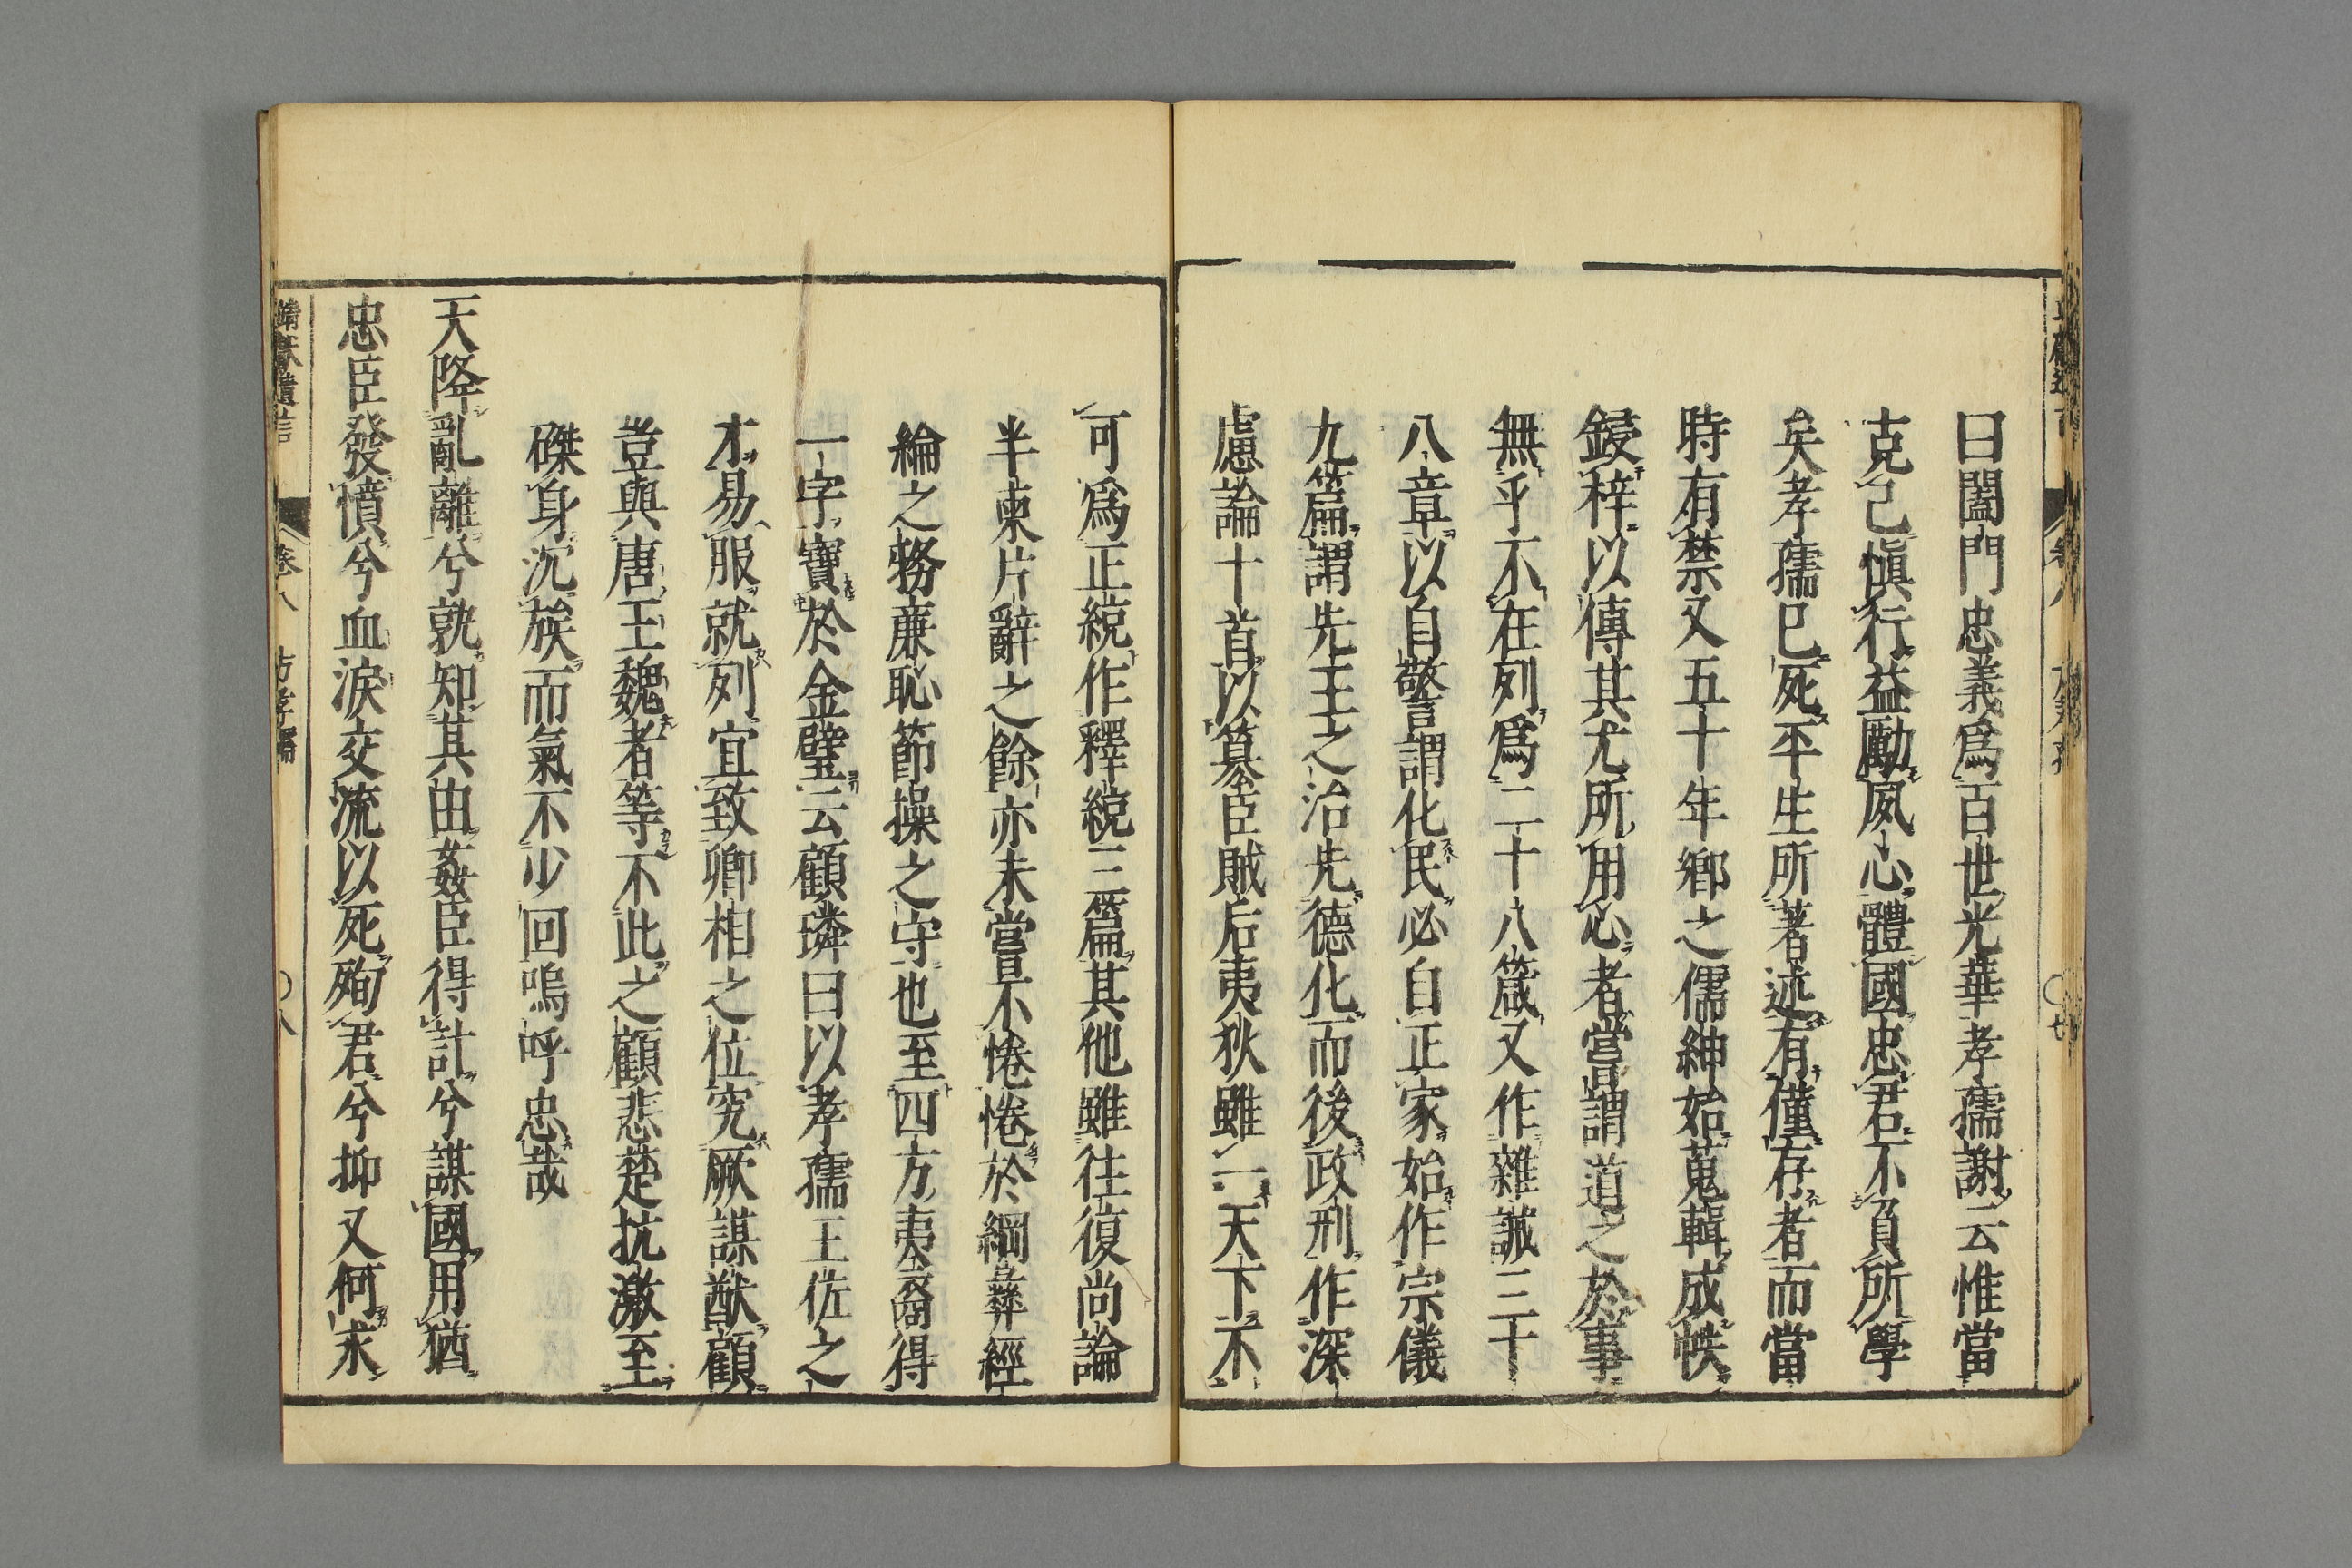 曰闔門忠義爲百世光華孝孺謝云惟當
克己愼行益勵夙心體國忠君不負所學
矣孝孺已死平生所著述有僅存者而當
時有禁又五十年鄉之儒紳始蒐輯成帙
鋟梓以傳其尤所用心者嘗謂道之於事
無乎不在列爲二十八箴又作雜誡三十
八章以自警謂化民必自正家始作宗儀
九篇謂先王之治先德化而後政刑作深
慮論十首以簒臣賊后夷狄雖一天下不
可爲正統作釋統三篇其他雖往復尚論
半柬片辭之餘亦未嘗不惓惓於綱彝經
綸之務廉恥節操之守也至四方夷裔得
一字寶於金璧云顧璘曰以孝孺王佐之
才易服就列宜致卿相之位究厥謀猷顧
豈與唐王魏者等不此之顧悲楚抗激至
磔身沉族而氣不少回嗚呼忠哉
天降亂離兮孰知其由姦臣得計兮謀國用猶
忠臣發憤兮血淚交流以死殉君兮抑又何求
靖獻遺言 卷八 方孝孺 〇八